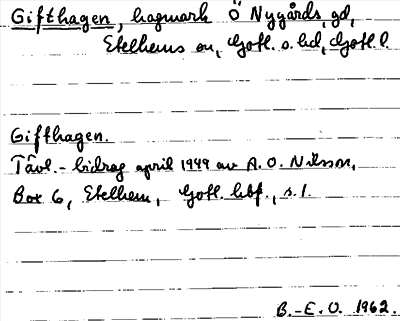 Gifthagen, hagmark Ö Nygårds, gd,
Etelhems sn, Gotl. s. hd, Gotl. l.
Gifthagen.
Tävl.-bidrag april 1949 av A. O. Nilsson,
Box 6, Etelhem, Gotl. hbf., s. 1.
B.-E. O. 1962.